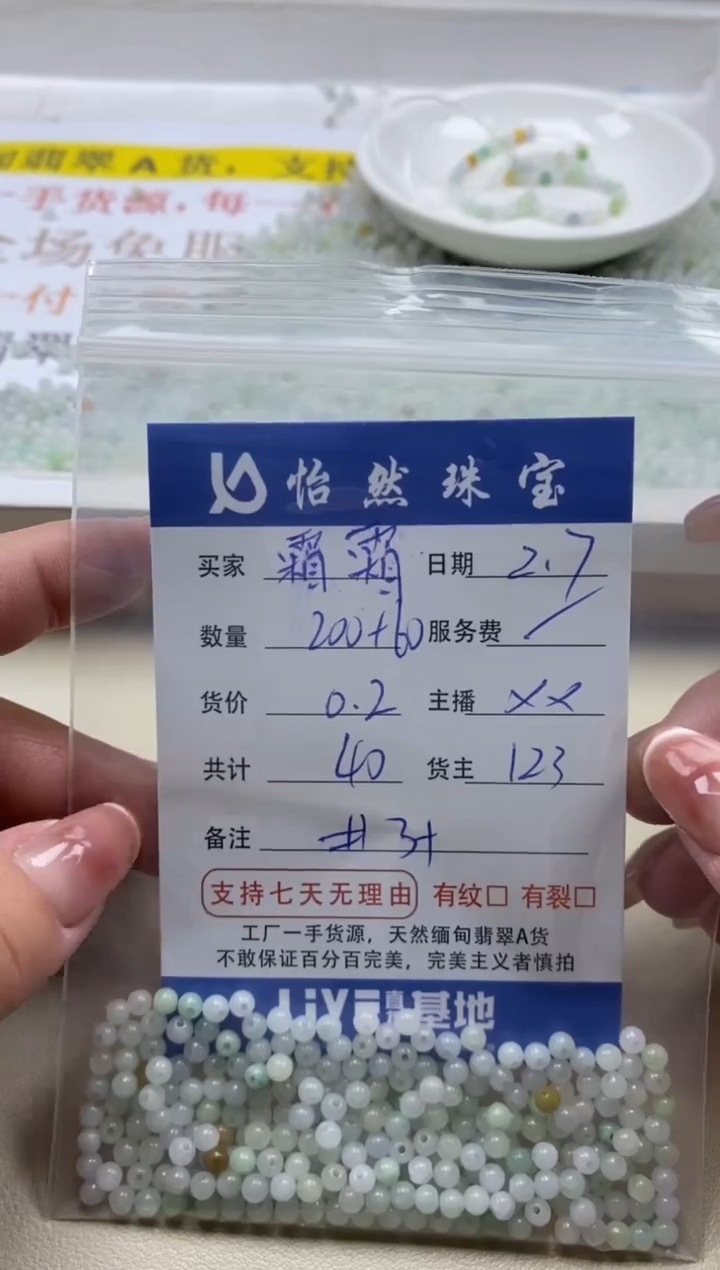 翡翠A货，支持
一手货源，每一
全场免服
一付
翡翠
怡然珠宝
买家 霸霸 日期 2.7
数量 200+60 服务费 /
货价 0.2 主播 xx
共计 40 货主 123
备注
支持七天无理由 有纹□ 有裂□
工厂一手货源，天然缅甸翡翠A货
不敢保证百分百完美，完美主义者慎拍
基地